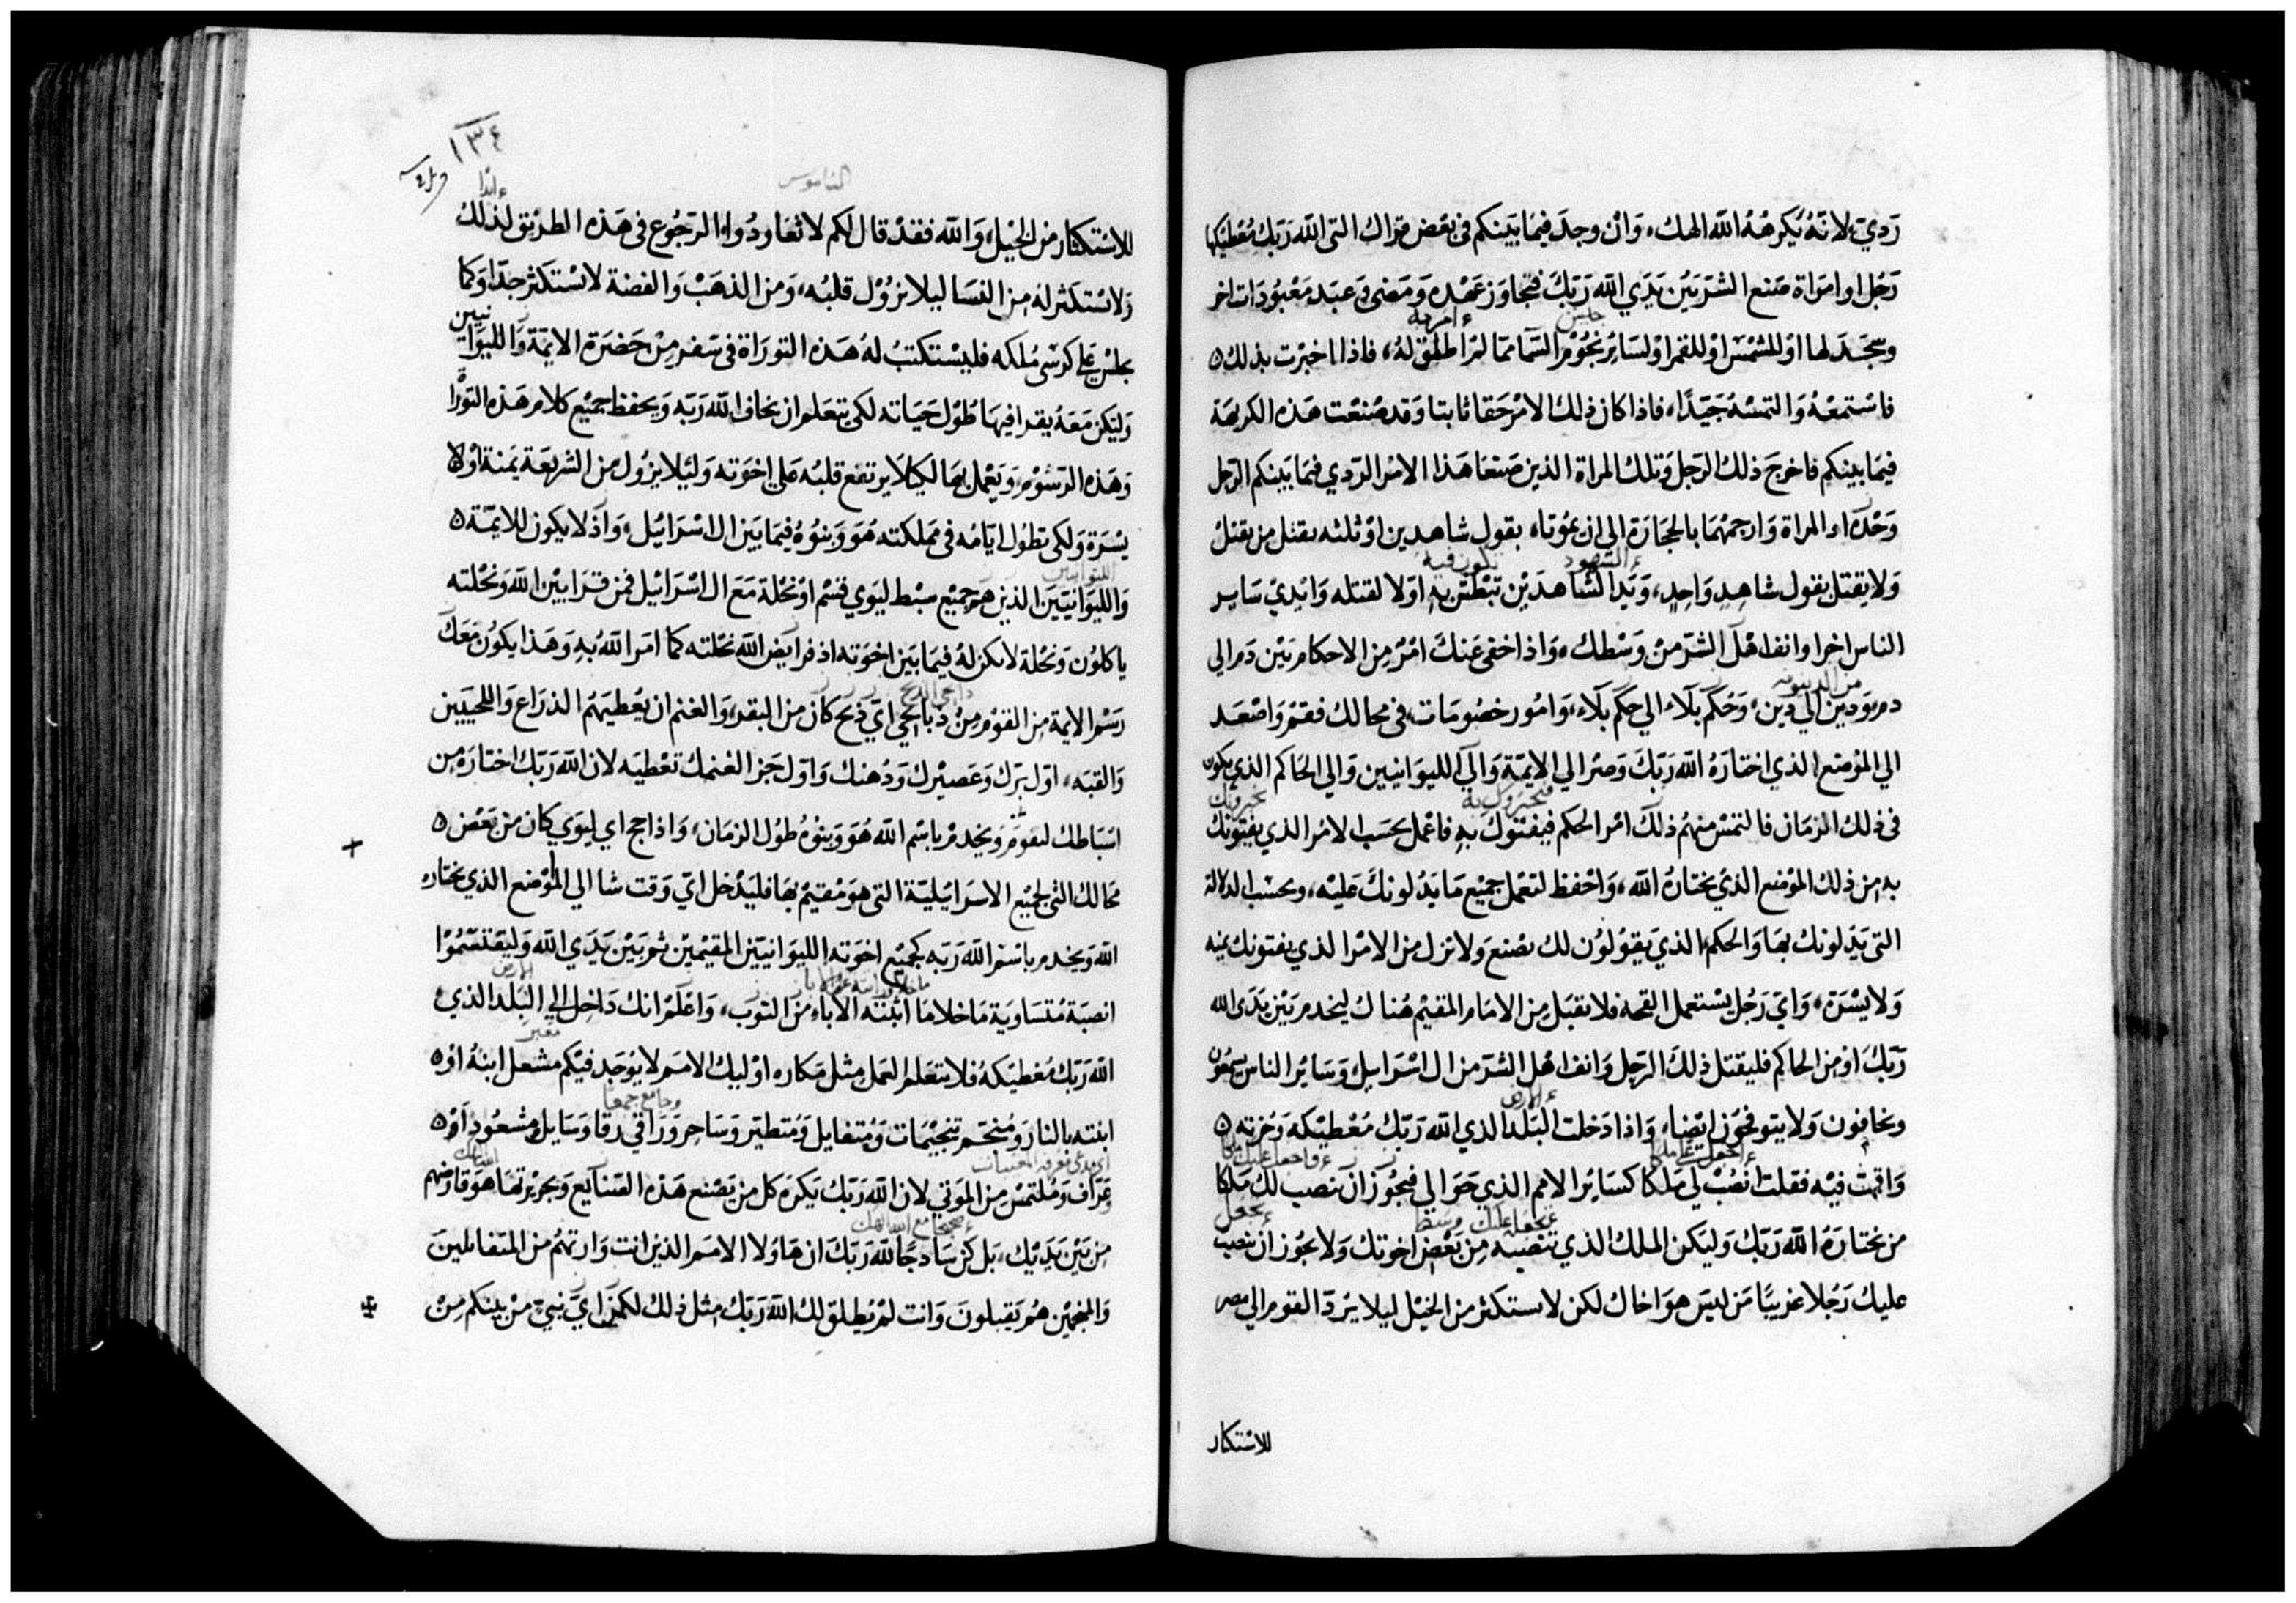 ردي لانه يكرهه الله الهك، وان وجد فيما بينكم في بعض قراك التي الله ربك معطيكها
رجل او امراة صنع الشر بين يدي الله ربك فتجاوز عهده ومضى وعبد معبودات اخر
وسجد لها او للشمس او للقمر او لسائر نجوم السما مما لم اطلق له، فاذا اخبرت بذلك
فاستمعه والتمسه جيدا، فاذا كان ذلك الامر حقا ثابتا وقد صنعت هذه الكريهة
فيما بينكم فاخرج ذلك الرجل وتلك المراة الذين صنعا هذا الامر الردي فيما بينكم الرجل
وحده او المراة وارجمهما بالحجارة الى ان يموتا، بقول شاهدين او ثلثه يقتل من يقتل
ولا يقتل بقول شاهد واحد، ويدا الشاهدين تبطش به اولا لقتله وايدي ساير
الناس اخرا وانف اهل الشر من وسطك، واذا اخفى عنك امر من الاحكام بين دم الى
دم ودين الى دين، وحكم بلاء الى حكم بلاء، وامور خصومات في محالك فقم واصعد
الي الموضع الذي اختاره الله ربك وصر الى الايمة والى الليوانيين والي الحاكم الذي يكون
في ذلك الزمان فالتمس منهم ذلك امر الحكم فيفتوك به فاعمل بحسب الامر الذي يفتونك
به من ذلك الموضع الذي يختاره الله، واحفظ لتعمل جميع ما يدلونك عليه، وبحسب الدلالة
التي يدلونك بها والحكم الذي يقولون لك تصنع ولا تزل من الامر الذي يفتونك يمنه
ولا يسرة، واي رجل يستعمل القحه فلا تقبل من الامام المقيم هناك ليخدم بين يدي الله
ربك او من الحاكم فليقتل ذلك الرجل وانف اهل الشر من ال اسرايل، وسائر الناس يسمعون
ويخافون ولا يتوقحون ايضا، واذا دخلت البلد الذي الله ربك معطيكه وحزته
واقمت فيه فقلت انصب لي ملكا كسائر الامم الذي حوالي فيجوز ان تنصب لك ملكا
من يختاره الله ربك وليكن الملك الذي تنصبه من بعض اخوتك ولا يجوز ان تنصب
عليك رجلا غريبا من ليس هو اخاك لكن لا يستكثر من الخيل ليلا يرد القوم الى مصر
للاستكثار
١٣٤
الناموس
للاستكثار من الخيل، والله فقد قال لكم لا تعاودوا الرجوع في هذه الطريق لذلك
ولا يستكثر له من النسا ليلا يزول قلبه، ومن الذهب والفضة لا يستكثر جدا، وكما
يجلس على كرسي ملكه فليستكتب له هذه التوراة في سفر من حضرة الايمة والليوانيين
وليكن معه يقرا فيها طول حياته لكي يتعلم ان يخاف الله ربه ويحفظ جميع كلام هذه التوراة
وهذه الرسوم ويعمل بها لكيلا يرتفع قلبه على اخوته وليلا يزول من الشريعة يمنة اولا
يسرة ولكي تطول ايامه في مملكته هو وبنوه فيما بين ال اسرائيل، واذ لا يكون للايمة
والليوانيين الذين هم جميع سبط ليوي قسم او نحلة مع ال اسرائيل فمن قرابين الله ونحلته
ياكلون ونحلة لا يكن له فيما بين اخوته اذ فرايض الله نحلته كما امر الله به وهذا يكون معك
رسم الايمة من القوم من ذبايحي اي ذبح كان من البقر، والغنم ان يعطيهم الذراع واللحيين
والقبه، اول برك وعصيرك ودهنك واول جز الغنمك تعطيه لان الله ربك اختاره من
اسباطك ليقوم ويخدم باسم الله هو وبنوه طول الزمان، واذا جا اي ليوي كان من بعض
محالك التي لجميع الاسرائيلية التي هو مقيم بها فليدخل اي وقت شا الى الموضع الذي يختاره
الله ويخدم باسم الله ربه كجميع اخوته الليوانيين المقيمين ثم بين يدي الله وليقتسموا
انصبة متساوية ما خلا ما اثبته الاباء من النوب، واعلم انك داخل الي البلد الذي
الله ربك معطيكه فلا تتعلم العمل مثل مكاره اوليك الامم لا يوجد فيكم مشعل ابنه او
ابنته بالنار ومنجم تنجيمات ومتفايل ومتطير وساحر وراقي رقا وسايل مشعوذ او
عراف وملتمس من الموتي لان الله ربك يكره كل من يصنع هذه الصنايع وبجريرتها هو قارضهم
من بين يديك، بل كن ساذجا لله ربك ان هاولا الامم الذين انت وارثهم من المتفايلين
والمنجمين هم يقبلون وانت لم يطلق لك الله ربك مثل ذلك لكن اي نبي من بينكم من